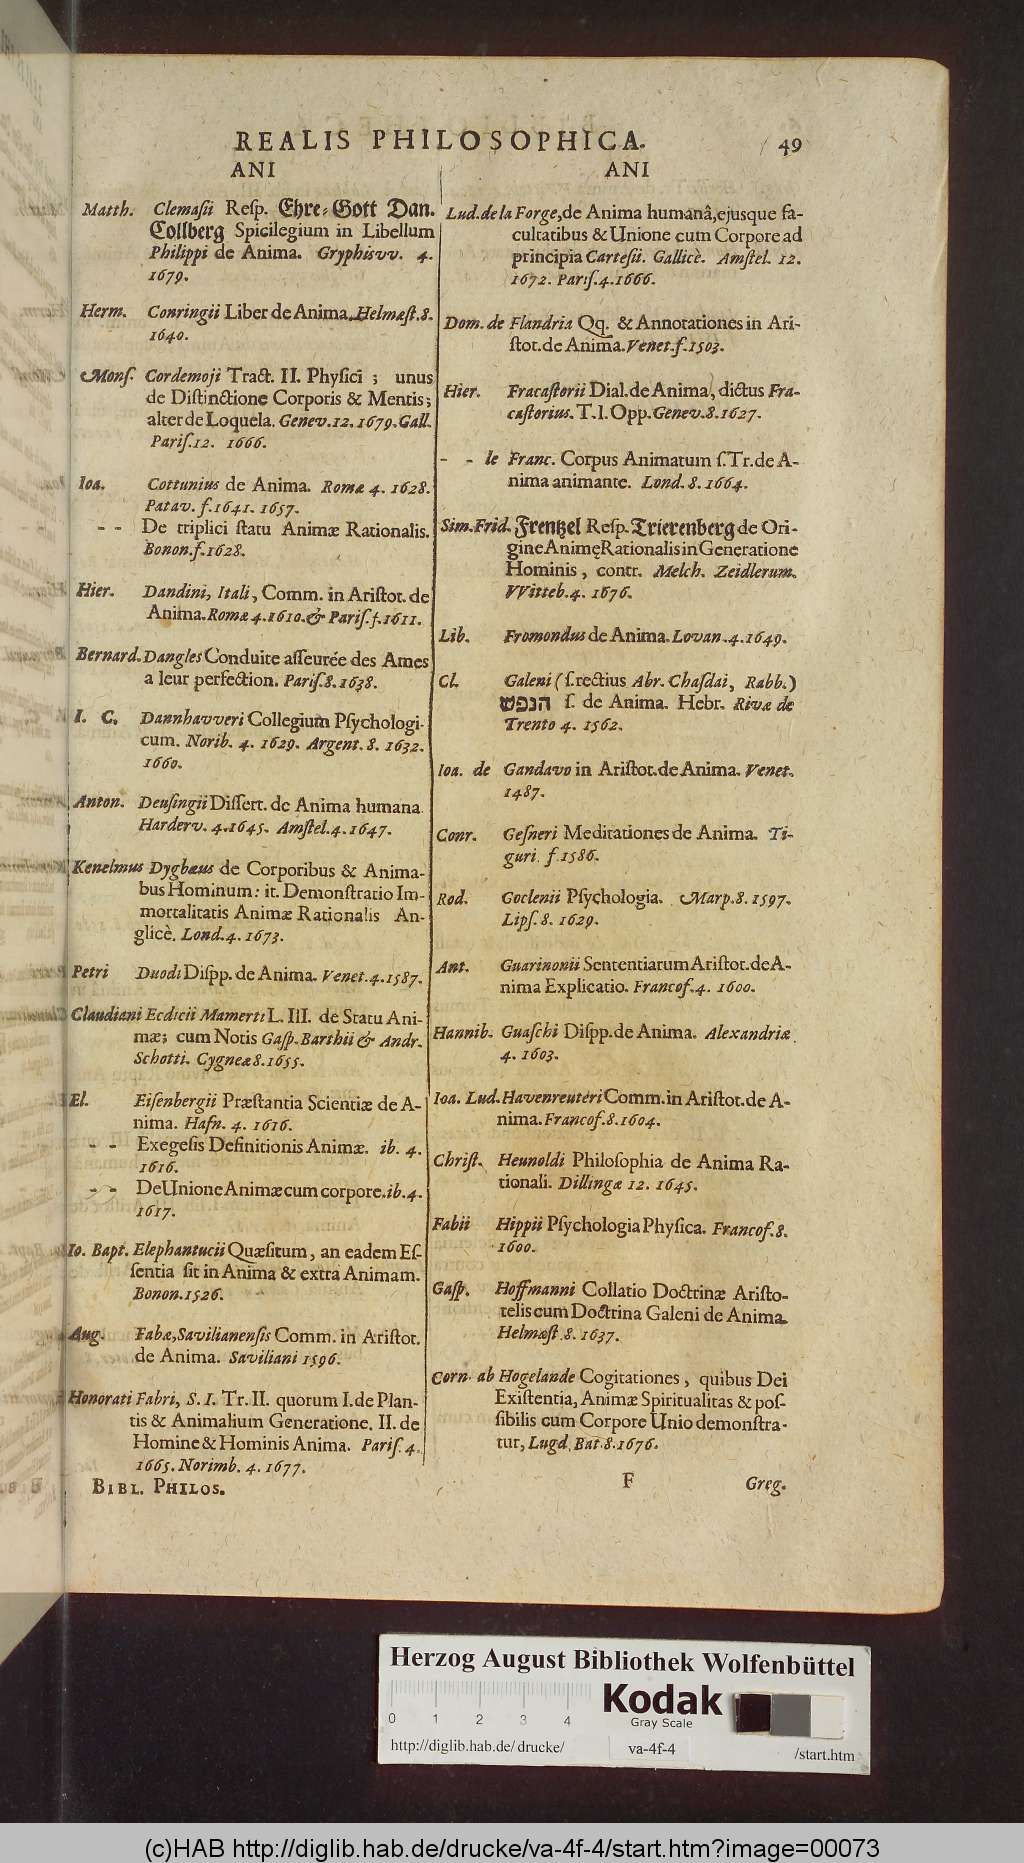 REALIS PHILOSOPHICA. 49
ANI
Matth. Clemasii Reſp. Ehre-Gott Dan.
Collberg Spicilegium in Libellum
Philippi de Anima. Gryphisvv. 4.
1679.
Herm. Conringii Liber de Anima. Helmæſt. 8.
1640.
Monſ. Cordemoji Tract. II. Phyſici; unus
de Diſtinctione Corporis & Mentis;
alter de Loquela. Genev. 12. 1679. Gall.
Pariſ. 12. 1666.
Ioa. Cottunius de Anima. Romæ 4. 1628.
Patav. f. 1641. 1657.
- - De triplici ſtatu Animæ Rationalis.
Bonon. f. 1628.
Hier. Dandini, Itali, Comm. in Ariſtot. de
Anima. Romæ 4. 1610. & Pariſ. f. 1611.
Bernard. Dangles Conduite aſſeurée des Ames
a leur perfection. Pariſ. 8. 1638.
I. C. Dannhavveri Collegium Pſychologi-
cum. Norib. 4. 1629. Argent. 8. 1632.
1660.
Anton. Deuſingii Diſſert. de Anima humana
Harderv. 4. 1645. Amſtel. 4. 1647.
Kenelmus Dygbæus de Corporibus & Anima-
bus Hominum: it. Demonſtratio Im-
mortalitatis Animæ Rationalis An-
glicè. Lond. 4. 1673.
Petri Duodi Diſpp. de Anima. Venet. 4. 1587.
Claudiani Ecdicii Mamerti L. III. de Statu Ani-
mæ; cum Notis Gaſp. Barthii & Andr.
Schotti. Cygneæ 8. 1655.
El. Eiſenbergii Præſtantia Scientiæ de A-
nima. Hafn. 4. 1616.
- - Exegeſis Definitionis Animæ. ib. 4.
1616.
- - De Unione Animæ cum corpore. ib. 4.
1617.
Io. Bapt. Elephantucii Quæſitum, an eadem Eſ-
ſentia ſit in Anima & extra Animam.
Bonon. 1526.
Aug. Fabæ, Savilianenſis Comm. in Ariſtot.
de Anima. Saviliani 1596.
Honorati Fabri, S. I. Tr. II. quorum I. de Plan-
tis & Animalium Generatione. II. de
Homine & Hominis Anima. Pariſ. 4.
1665. Norimb. 4. 1677.
BIBL. PHILOS.
ANI
Lud. de la Forge, de Anima humanâ, ejusque fa-
cultatibus & Unione cum Corpore ad
principia Carteſii. Gallicè. Amſtel. 12.
1672. Pariſ. 4. 1666.
Dom. de Flandria Qq. & Annotationes in Ari-
ſtot. de Anima. Venet. f. 1503.
Hier. Fracaſtorii Dial. de Anima, dictus Fra-
caſtorius. T. I. Opp. Genev. 8. 1627.
- - le Franc. Corpus Animatum ſ. Tr. de A-
nima animante. Lond. 8. 1664.
Sim. Frid. Frentzel Reſp. Trierenberg de Ori-
gine Animę Rationalis in Generatione
Hominis, contr. Melch. Zeidlerum.
VVitteb. 4. 1676.
Lib. Fromondus de Anima. Lovan. 4. 1649.
Cl. Galeni (ſ. rectius Abr. Chaſdai, Rabb.)
הנפש ſ. de Anima. Hebr. Rivæ de
Trento 4. 1562.
Ioa. de Gandavo in Ariſtot. de Anima. Venet.
1487.
Conr. Geſneri Meditationes de Anima. Ti-
guri f. 1586.
Rod. Goclenii Pſychologia. Marp. 8. 1597.
Lipſ. 8. 1629.
Ant. Guarinonii Sententiarum Ariſtot. de A-
nima Explicatio. Francof. 4. 1600.
Hannib. Guaſchi Diſpp. de Anima. Alexandriæ
4. 1603.
Ioa. Lud. Havenreuteri Comm. in Ariſtot. de A-
nima. Francof. 8. 1604.
Chriſt. Heunoldi Philoſophia de Anima Ra-
tionali. Dillingæ 12. 1645.
Fabii Hippii Pſychologia Phyſica. Francof. 8.
1600.
Gaſp. Hoffmanni Collatio Doctrinæ Ariſto-
telis cum Doctrina Galeni de Anima.
Helmæſt. 8. 1637.
Corn. ab Hogelande Cogitationes, quibus Dei
Exiſtentia, Animæ Spiritualitas & poſ-
ſibilis cum Corpore Unio demonſtra-
tur, Lugd. Bat. 8. 1676.
F Greg.
Herzog August Bibliothek Wolfenbüttel
0 1 2 3 4
Kodak
Gray Scale
http://diglib.hab.de/drucke/ va-4f-4 /start.htm
(c)HAB http://diglib.hab.de/drucke/va-4f-4/start.htm?image=00073